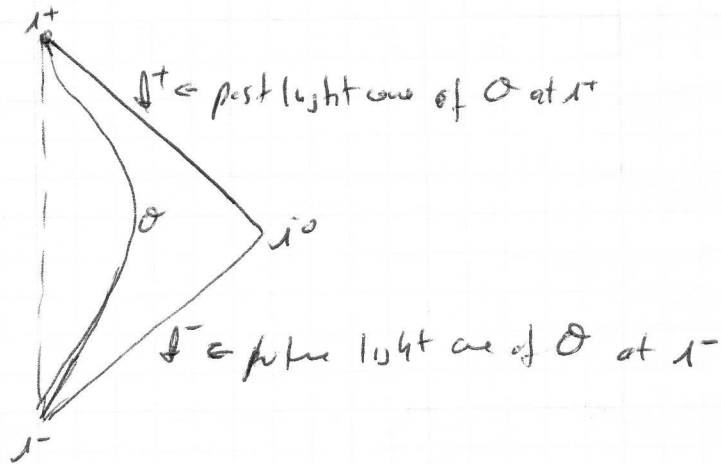 i⁺
𝓘⁺ ← past light cone of O at i⁺
O
i⁰
𝓘⁻ ← future light cone of O at i⁻
i⁻